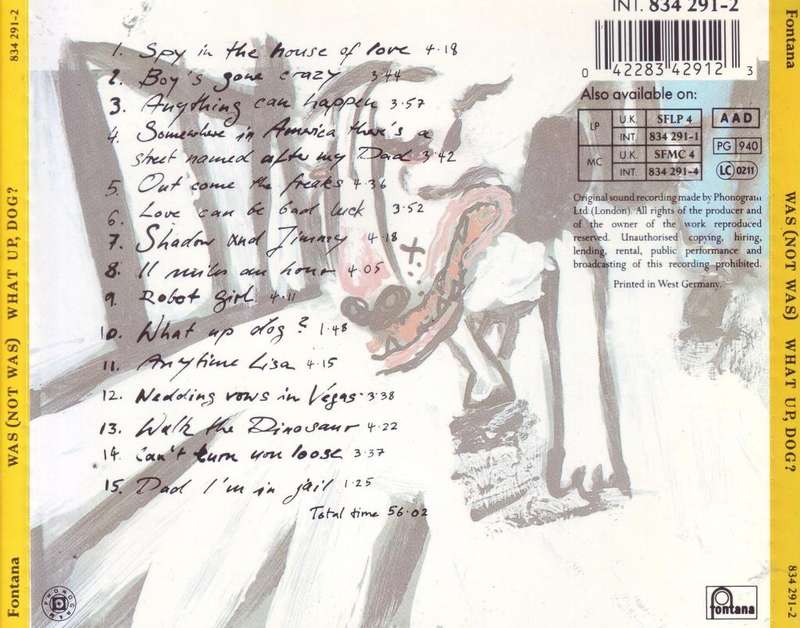 INT. 834 291-2
0 42283 42912 3
Also available on:
LP U.K. SFLP 4
INT. 834 291-1
MC U.K. SFMC 4
INT. 834 291-4
AAD
PG 940
LC 0211
Original sound recording made by Phonogram
Ltd (London). All rights of the producer and
of the owner of the work reproduced
reserved. Unauthorised copying, hiring,
lending, rental, public performance and
broadcasting of this recording prohibited.
Printed in West Germany.
1. Spy in the house of love 4.18
2. Boy's gone crazy 3.44
3. Anything can happen 3.57
4. Somewhere in America there's a
street named after my Dad 3.42
5. Out come the freaks 4.36
6. Love can be bad luck 3.52
7. Shadow and Jimmy 4.18
8. 11 miles an hour 4.05
9. Robot girl 4.11
10. What up dog? 1.48
11. Anytime Lisa 4.15
12. Wedding vows in Vegas 3.38
13. Walk the Dinosaur 4.22
14. Can't turn you loose 3.37
15. Dad I'm in jail 1.25
Total time 56.02
fontana
PHONOGRAM
Fontana WAS (NOT WAS) WHAT UP, DOG? 834 291-2
Fontana WAS (NOT WAS) WHAT UP, DOG? 834 291-2